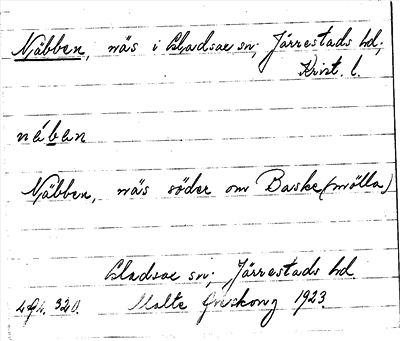 Näbben, näs i Gladsax sn; Järrestads hd;
Krist. l.
nában
Näbben, näs söder om Baske(mölla)
Gladsax sn; Järrestads hd
Lgh. 320. Malte 1923.